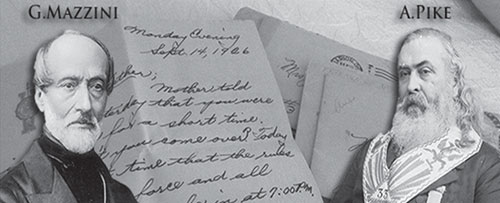 G.MAZZINI
A.PIKE
Monday Evening
Sept. 14, 1906
ther;
Mother told
terday that you were
for a short time.
you come over? Today
time that the rules
force and all
in at 7:00 P.M.
33